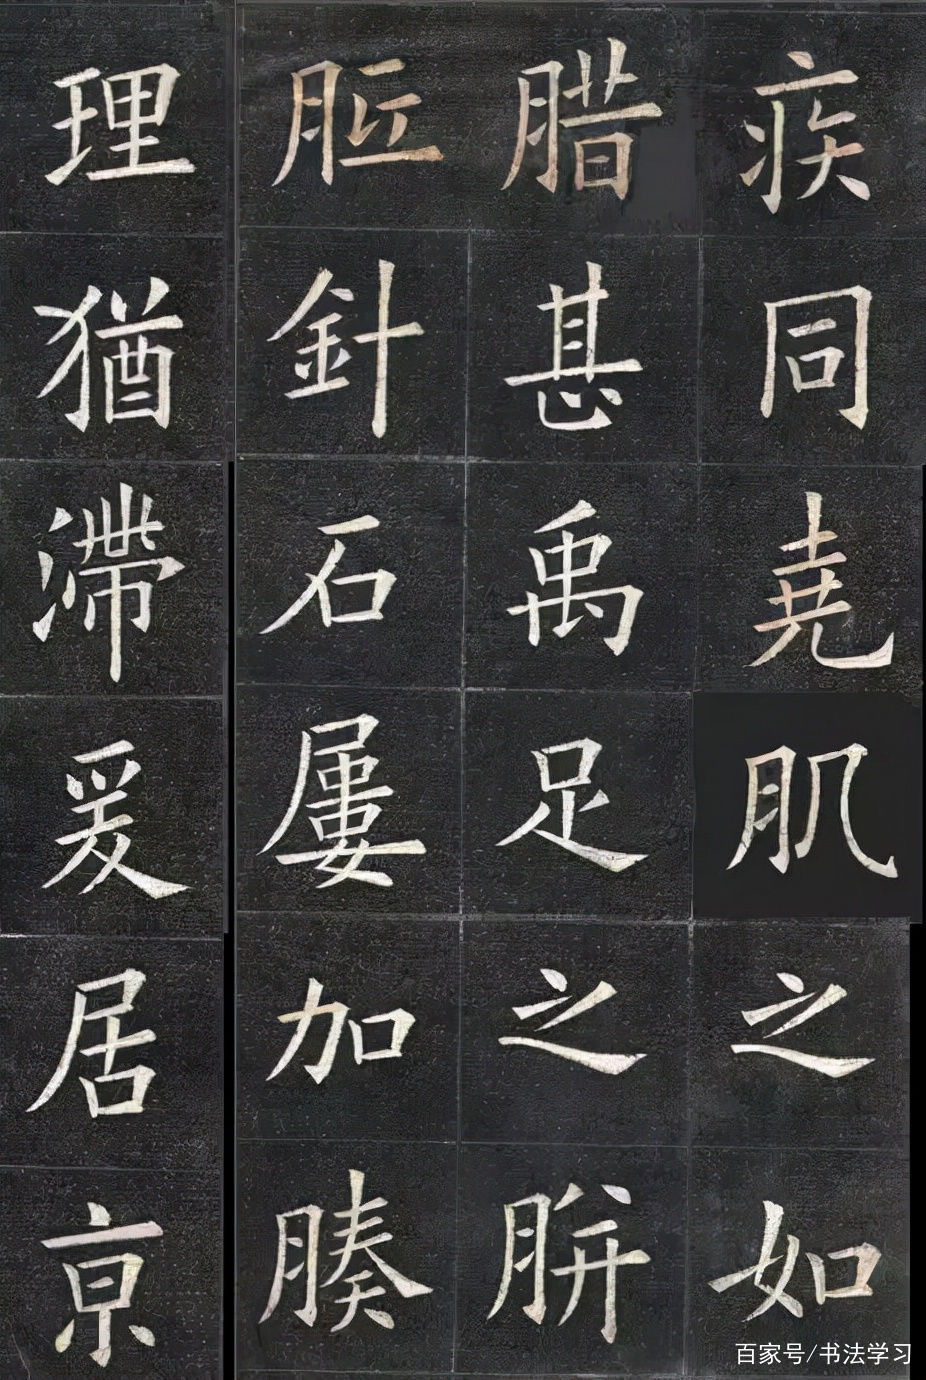 疾同堯肌之如
腊甚禹足之胼
胝針石屢加腠
理猶滯爰居亰
百家号/书法学习